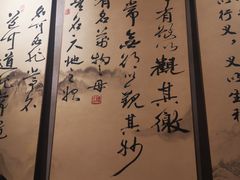 名可名非常名
名天地之始
有名萬物之母
常無欲以觀其妙
有欲以觀其徼